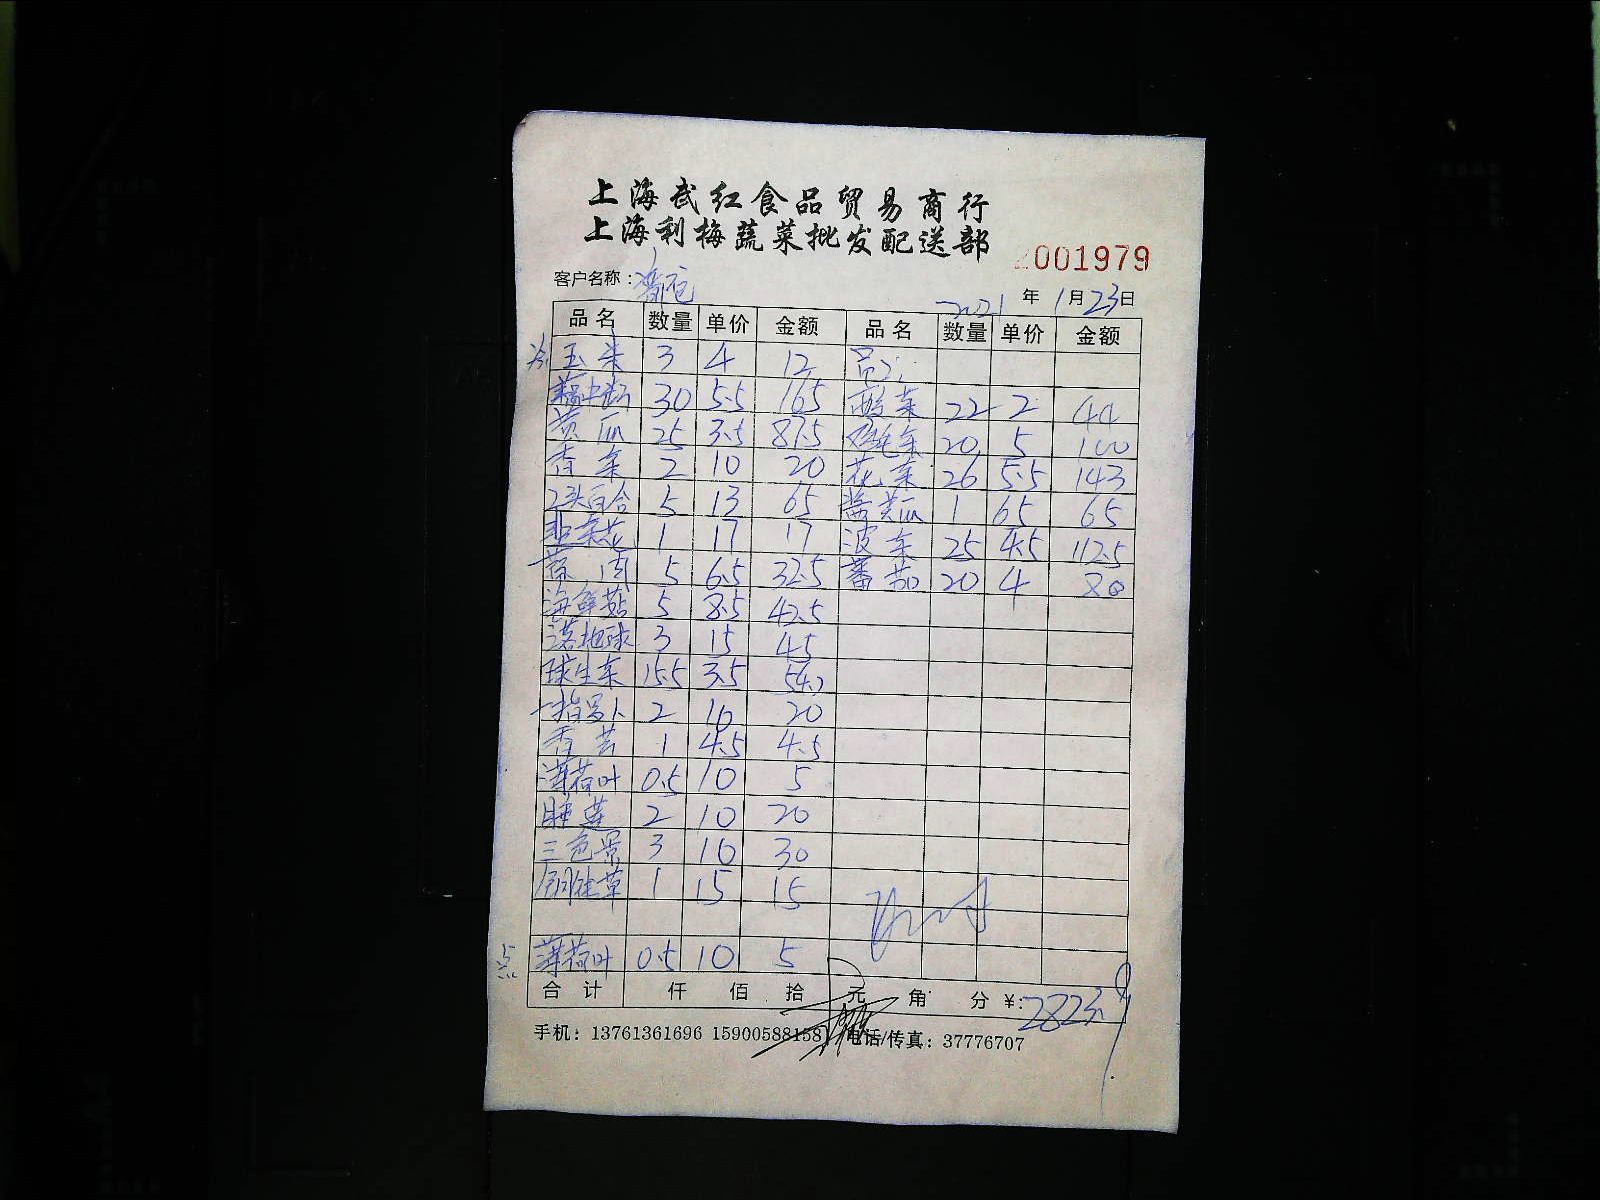 上海武红食品贸易商行
上海利梅蔬菜批发配送部
2001979
客户名称：
2021年1月23日
品名 数量 单价 金额 品名 数量 单价 金额
玉米 3 4 12
30 5.5 165 酸菜 22 2 44
黄瓜 25 3.5 87.5 鸡毛菜 20 5 100
香菜 2 10 20 花菜 26 5.5 143
2头百合 5 13 65 酱黄瓜 1 65 65
韭菜花 1 17 17 波菜 25 4.5 112.5
5 6.5 32.5 蕃茄 20 4 80
海鲜菇 5 8.5 42.5
3 15 45
球生菜 15.5 3.5
2 10 20
香芹 1 4.5 4.5
薄荷叶 0.5 10 5
睡莲 2 10 20
三色堇 3 10 30
铜钱草 1 15 15
薄荷叶 0.5 10 5
合计 仟 佰 拾 元 角 分 ¥:
手机：13761361696 15900588158 电话/传真：37776707